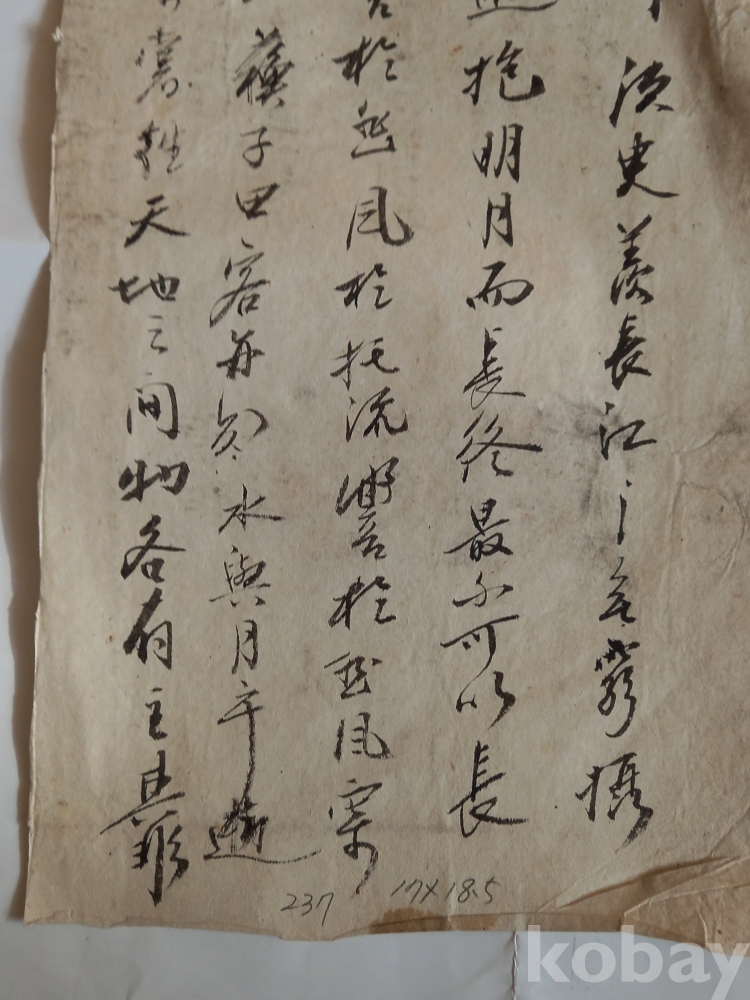 須臾羨長江之無窮
抱明月而長終最不可以長
於悲風於托流響於悲風
蘇子曰客水與月乎逝
天地之間物各有主
237 17×18.5
kobay